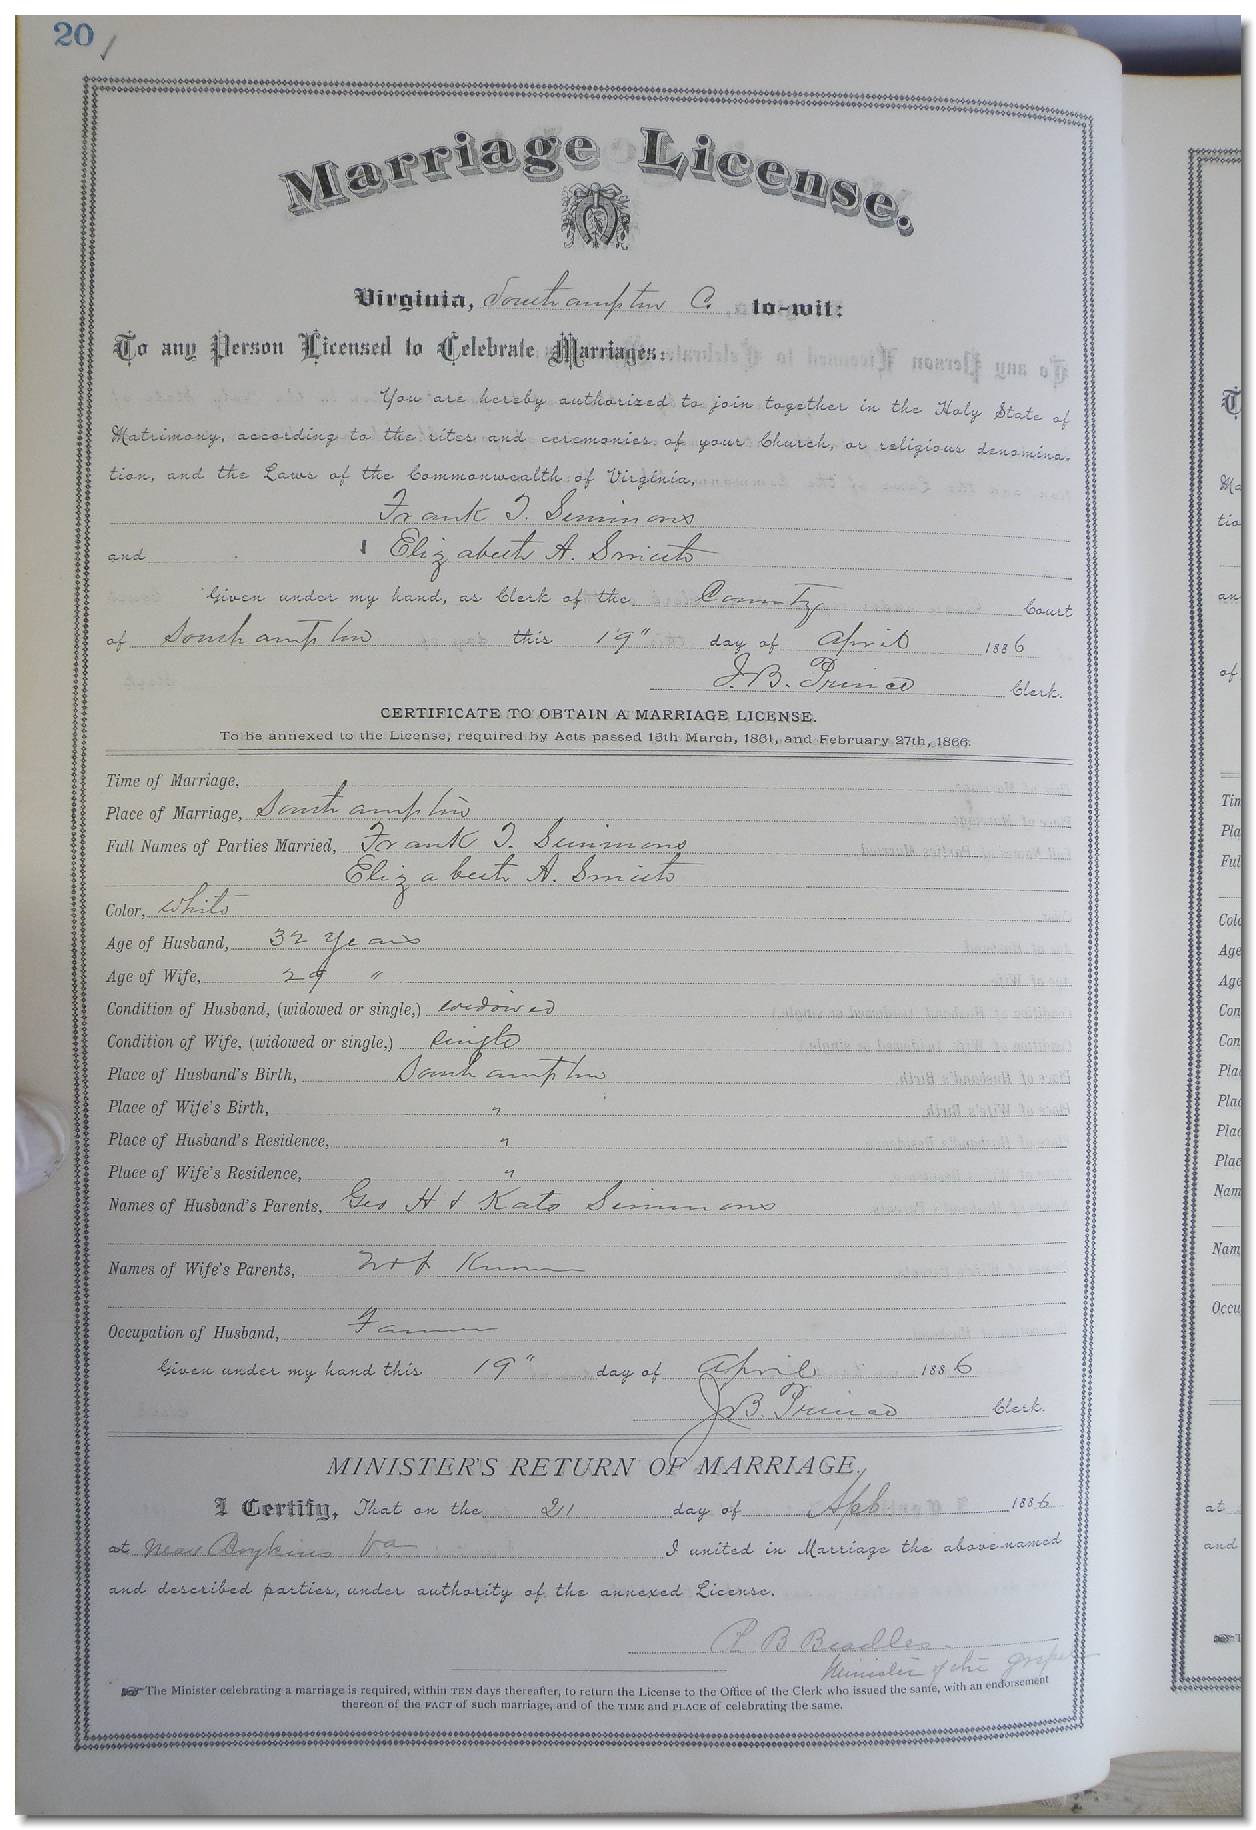 20
Marriage License.
Virginia, Southampton Co. to-wit:
To any Person Licensed to Celebrate Marriages:
You are hereby authorized to join together in the Holy State of
Matrimony, according to the rites and ceremonies of your Church, or religious denomina-
tion, and the Laws of the Commonwealth of Virginia,
Frank T. Simmons
and Elizabeth A. Smith
Given under my hand, as Clerk of the County Court
of Southampton this 19" day of April 1886
J. B. Prince Clerk.
CERTIFICATE TO OBTAIN A MARRIAGE LICENSE.
To be annexed to the License, required by Acts passed 15th March, 1861, and February 27th, 1866.
Time of Marriage,
Place of Marriage, Southampton
Full Names of Parties Married, Frank T. Simmons
Elizabeth A. Smith
Color, White
Age of Husband, 32 years
Age of Wife, 29 "
Condition of Husband, (widowed or single,) widowed
Condition of Wife, (widowed or single,) single
Place of Husband's Birth, Southampton
Place of Wife's Birth, "
Place of Husband's Residence, "
Place of Wife's Residence, "
Names of Husband's Parents, Geo H & Kate Simmons
Names of Wife's Parents, Not Known
Occupation of Husband, Farmer
Given under my hand this 19" day of April 1886
J. B. Prince Clerk.
MINISTER'S RETURN OF MARRIAGE.
I Certify, That on the 21 day of Apl 1886
at Near Boykins Va I united in Marriage the above-named
and described parties, under authority of the annexed License.
B Beadles
Minister of the gospel
The Minister celebrating a marriage is required, within TEN days thereafter, to return the License to the Office of the Clerk who issued the same, with an endorsement
thereon of the FACT of such marriage, and of the TIME and PLACE of celebrating the same.